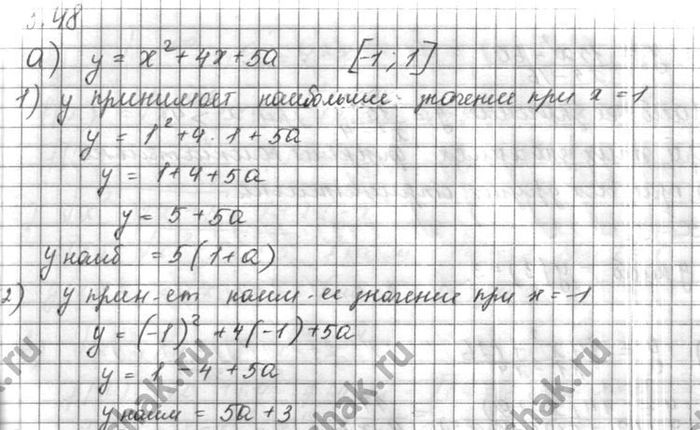 .48
а) y = x² + 4x + 5a [-1; 1]
1) y принимает наибольшее значение при x = 1
y = 1² + 4 · 1 + 5a
y = 1 + 4 + 5a
y = 5 + 5a
y наиб = 5(1+a)
2) y прин-ет наим-ее значение при x = -1
y = (-1)² + 4(-1) + 5a
y = 1 - 4 + 5a
y наим = 5a + 3